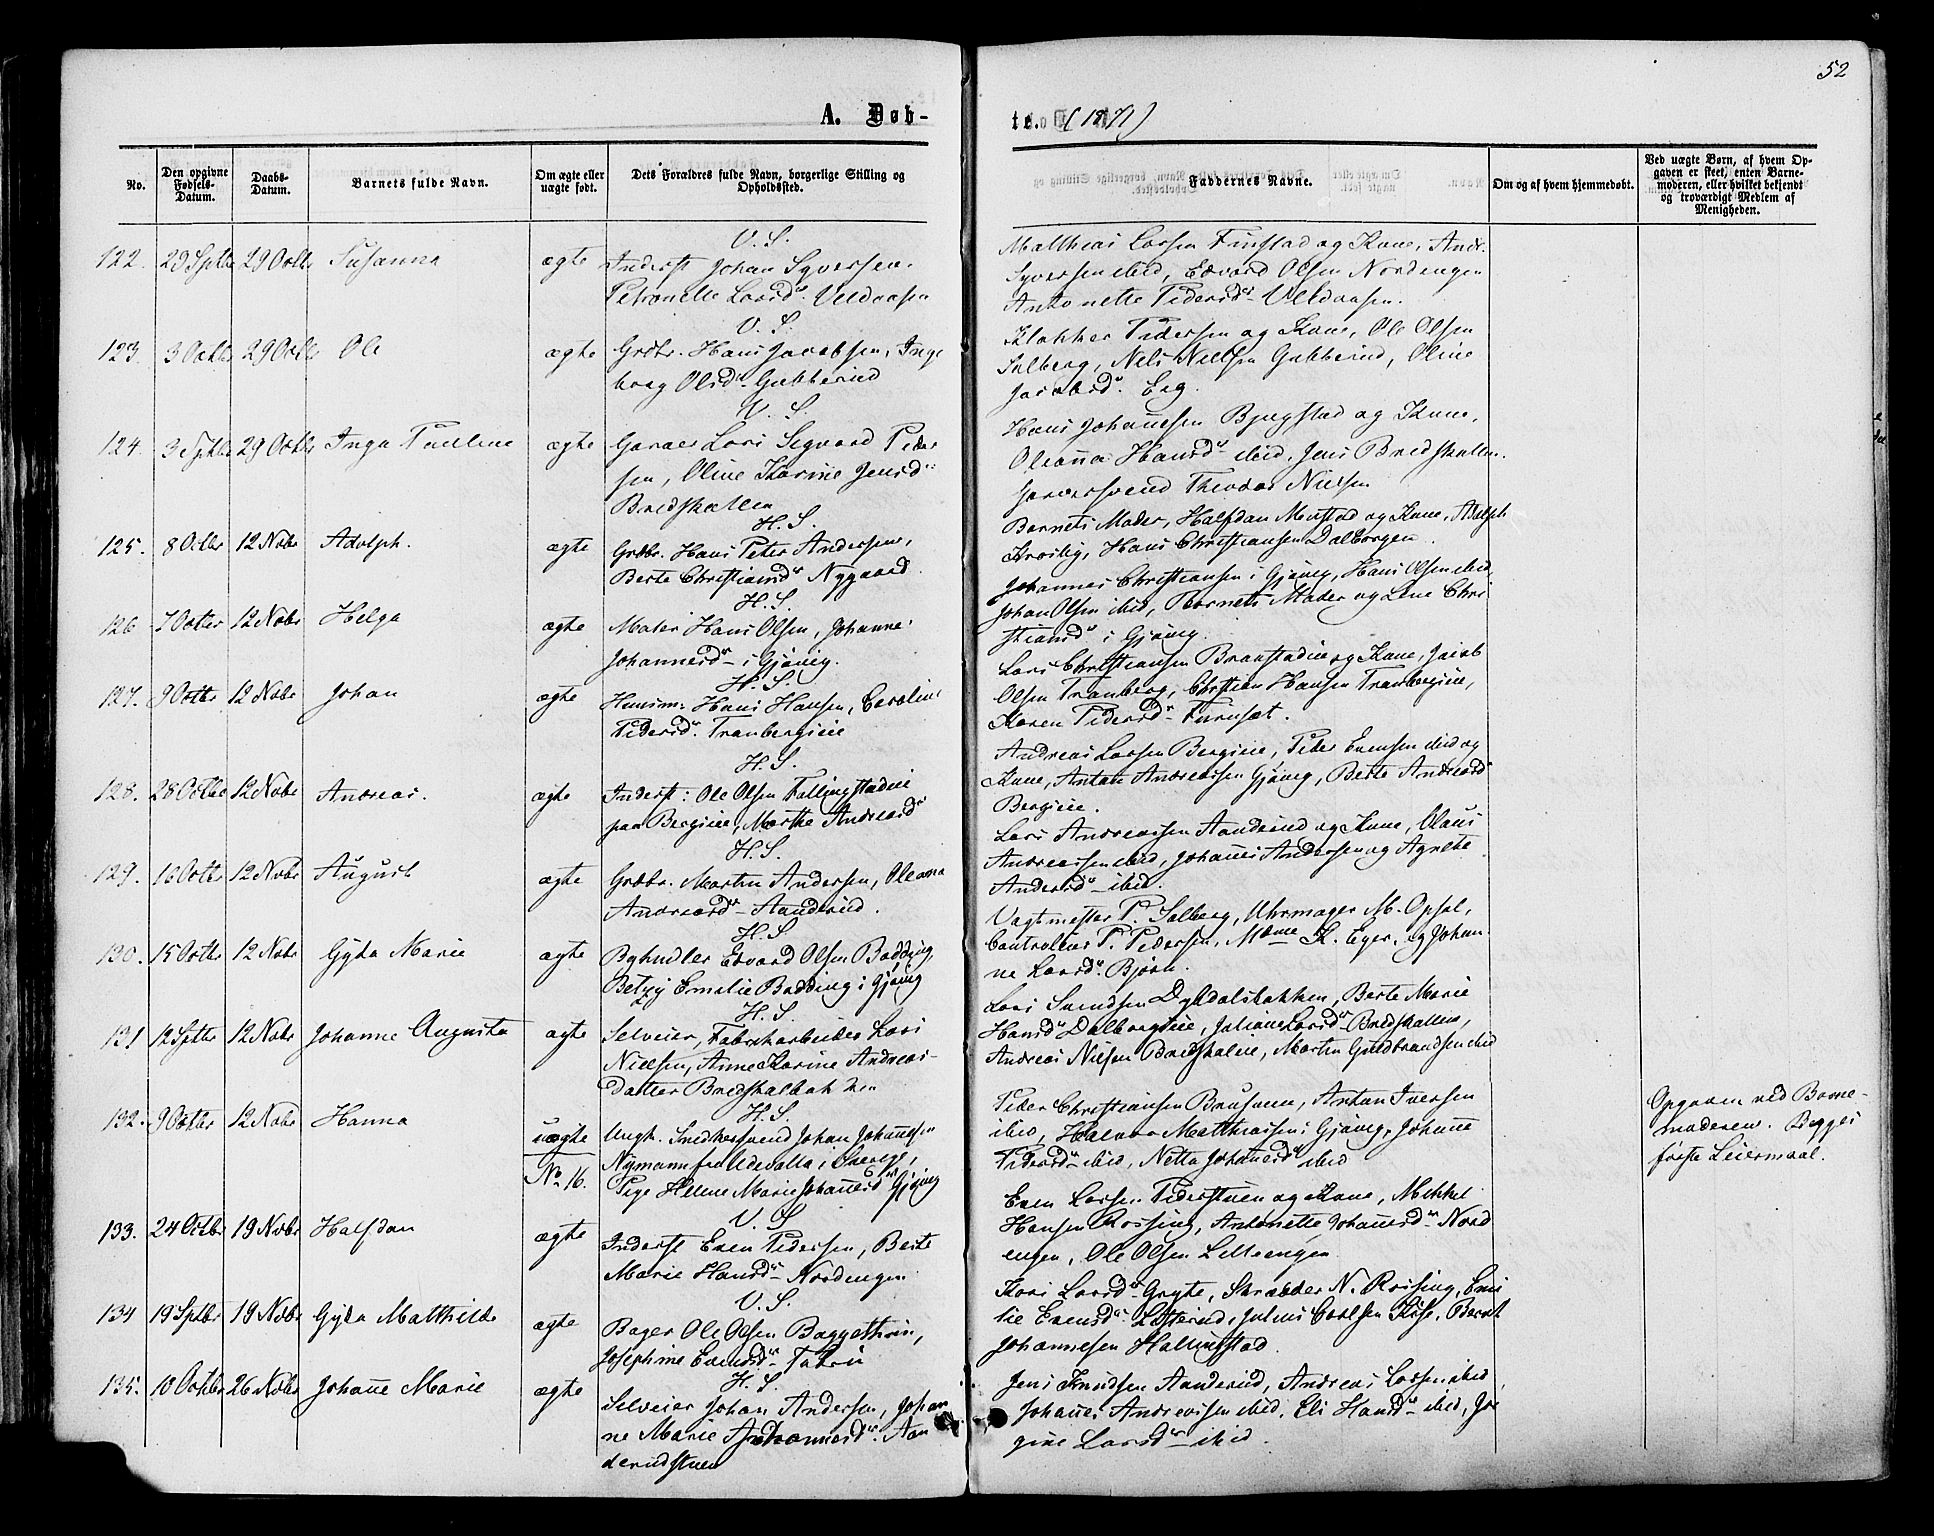 52
A. Døb-
te. (1871)
No.
Den opgivne Fødsels-Datum.
Daabs-Datum.
Barnets fulde Navn.
Om ægte eller uægte født.
Dets Forældres fulde Navn, borgerlige Stilling og Opholdssted.
Faddernes Navne.
Om og af hvem hjemmedøbt.
Ved uægte Børn, af hvem Op-
gaven er skeet, enten Barne-
moderen, eller hvilket bekjendt
og troværdigt Medlem af
Menigheden.
V. S.
122. 29 Octbr Susanna ægte Inderst Johan Syversen,
Petronelle Larsd. Veldaasen
Matthias Larsen Finstad og Kone, Andr.
Syversen ibid, Edvard Olsen Nordengen
Antonette Pedersd. Veldaasen.
V. S.
123. 3 Octbr 29 Octbr Ole ægte Grdbr. Hans Jacobsen, Inge
borg Olsd. Gubberud
Klokker Pedersen og Kone, Ole Olsen
Sulberg, Nels Nielsen Gubberud, Oline
Jacobsd. Eeg.
V. S.
124. 3 Sptbr 29 Octbr Inga Pauline ægte Garver Lars Sigvard Peder
sen, Oline Karine Jensd.
Bredskallen
Hans Johannesen Bjugstad og Kone,
Oleanna Hansd. ibid, Jens Bredskallen.
Garversvend Theodor Nielsen
H. S.
125. 8 Octbr 12 Nobr Adolph. ægte Grdbr. Hans Peter Andersen,
Berte Christiansd. Nygaard
Barnets Moder, Halfdan Mustad og Kone, Adolph
Hans Christiansen Dalborgen.
H. S.
126 7 Octbr 12 Nobr Helga ægte Maler Hans Olsen, Johanne
Johannesd. i Gjøvig.
Johannes Christiansen i Gjøvig, Hans Olsen ibid,
Johan Olsen ibid, Barnets Moder og Lene Chri
stiansd. i Gjøvig.
H. S.
127. 9 Octbr 12 Nobr Johan ægte Husm. Hans Hansen, Caroline
Pedersd. Tranbergeie
Lars Christiansen Braastadeie og Kone, Jacob
Olsen Tranberg, Christian Hansen Tranbergeie,
Karen Pedersd. Furuset.
H. S.
128. 28 Octbr 12 Nobr Andreas. ægte Inderst: Ole Olsen Fallingstadeie
paa Bergeie, Marthe Andreasd.
Andreas Larsen Bergeie, Peder Evensen ibid og
Kone, Anton Andreassen Gjøvig, Berte Andreasd.
Bergeie.
H. S.
129. 16 Octbr 12 Nobr August ægte Grdbr. Martin Andersen, Oleana
Andreasd. Aanderud.
Lars Andreassen Aanderud og Kone, Olaus
Andreassen ibid, Johannes Andersen og Agnethe
Andersd. ibid.
H. S.
130. 15 Octbr 12 Nobr Gyda Marie ægte Byhndler Edvard Olsen Bødding,
Betzy Emelie Bødding i Gjøvig
Vagtmester P. Sulberg, Uhrmager M. Opsal,
Controlleur P. Pedersen, Mdme K. Eger, og Johan
ne Larsd. Bjørn.
H. S.
131 12 Sptbr 12 Nobr Johanne Augusta ægte Selveier, Fabrikarbeider Lars
Nielsen, Anne Karine Andreas-
datter Bredskalbakken
Lars Svendsen Dyhdalsbakken, Berte Marie
Hansd. Dalborgseie, Juliane Larsd. Bredskallen,
Andreas Nilsen Bredskaleie, Martin Guldbrandsen ibid
H. S.
132. 9 Octbr 12 Nobr Hanna uægte Ungk. Snedkersvend Johan Johannesen
No 16. Nymann fra Udevalla i Sverige,
Pige Helene Marie Johannesd. Gjøvig
Peder Christiansen Bruvene, Anton Iversen
ibid, Halvor Matthiassen i Gjøvig, Johanne
Pedersd. ibid, Netta Johannesd. ibid
Opgaven ved Barne-
moderen. Begges
første Leiermaal.
V. S.
133. 24 Octbr 19 Nobr Halfdan ægte Inderst Even Pedersen, Berte
Marie Hansd. Nordengen
Even Larsen Pederstuen og Kone, Mikkel
Hansen Røssing, Antonette Johannesd. Nord
engen, Ole Olsen Lilleengen
V. S.
134 19 Sptbr 19 Nobr Gyda Matthilde ægte Bager Ole Olsen
Josephine Evensd.
Kari Larsd. Gryte, Skrædder N. Røssing, Emi
lie Evensd. Julius Carlsen Kise, Bernt
Johannesen
H. S.
135. 10 Octbr 26 Nobr Johanne Marie ægte Selveier Johan Andersen, Johan
ne Marie Johannesd. Aan
derudstuen
Jens Knudsen Aanderud, Andreas Larsen ibid,
Johannes Andreassen ibid, Eli Hansd. ibid, Jør
gine Larsd. ibid.